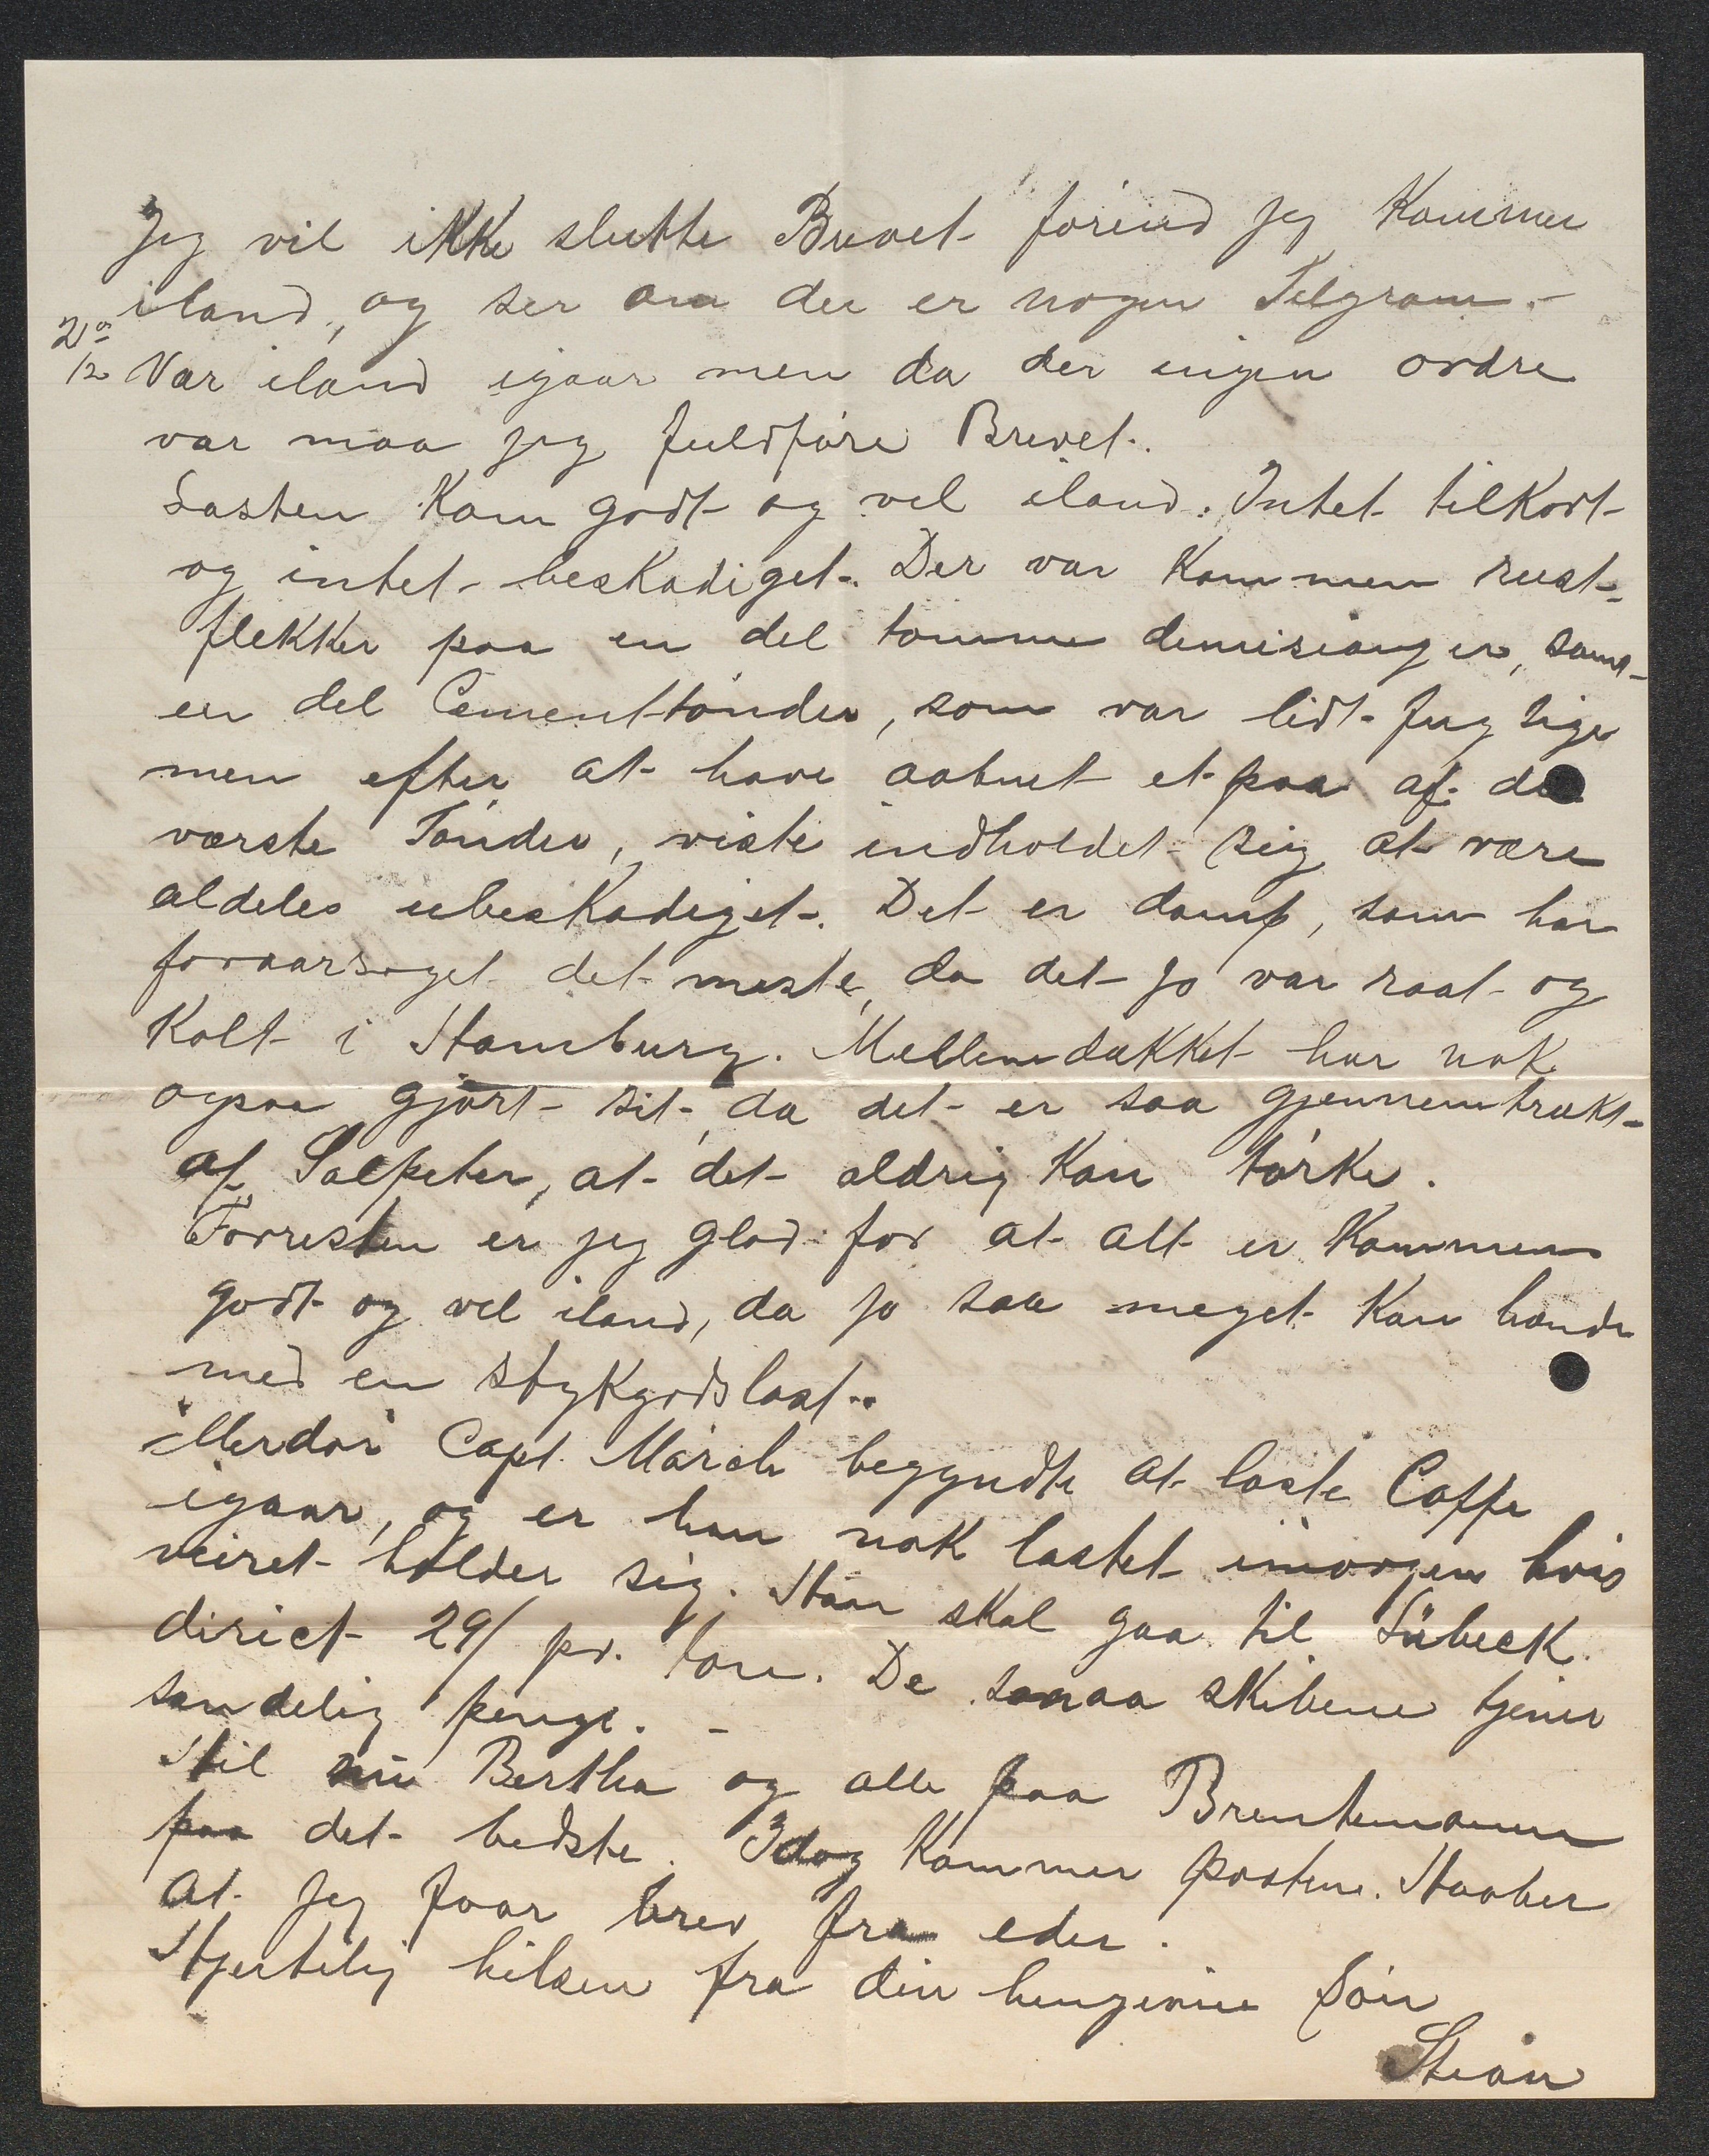 Jeg vil ikke slutte Brevet forend jeg kommer
iland, og ser om der er nogen Telgram.-
2/12 Var iland igaar men da der ingen ordre
var maa jeg fuldføre Brevet.
Lasten kom godt og vel iland. Intet tilkort
og intet beskadiget. Der var kommen rust-
flekker paa en del tomme demisianger, samt
en del Cementtønder, som var lidt fugtige
men efter at have aabnet et par af de
værste Tønder, viste indholdet sig at være
aldeles ubeskadiget. Det er damp, som har
foraarsaget det meste, da det jo var raat og
kolt i Hamburg. Mellemdækket har nok
ogsaa gjørt sit, da det er saa gjennemtrukt
af Salpeter, at det aldrig kan tørke.
Forresten er jeg glad for at alt er kommen
godt og vel iland, da jo saa meget kan hænde
med en stykgodslast.
Merdør Capt. Mørch begyndte at laste Caffe
igaar, og er han nok lastet imorgen hvis
veiret holder sig. Han skal gaa til Lübeck
direct 29/ pr. ton. De smaa skibene tjener
sandelig penge. -
Hil Bertha og alle paa
paa det bedste. Idag kommer posten. Haaber
at jeg faar brev fra eder.
Hjertelig hilsen fra din hengivne søn
Stian